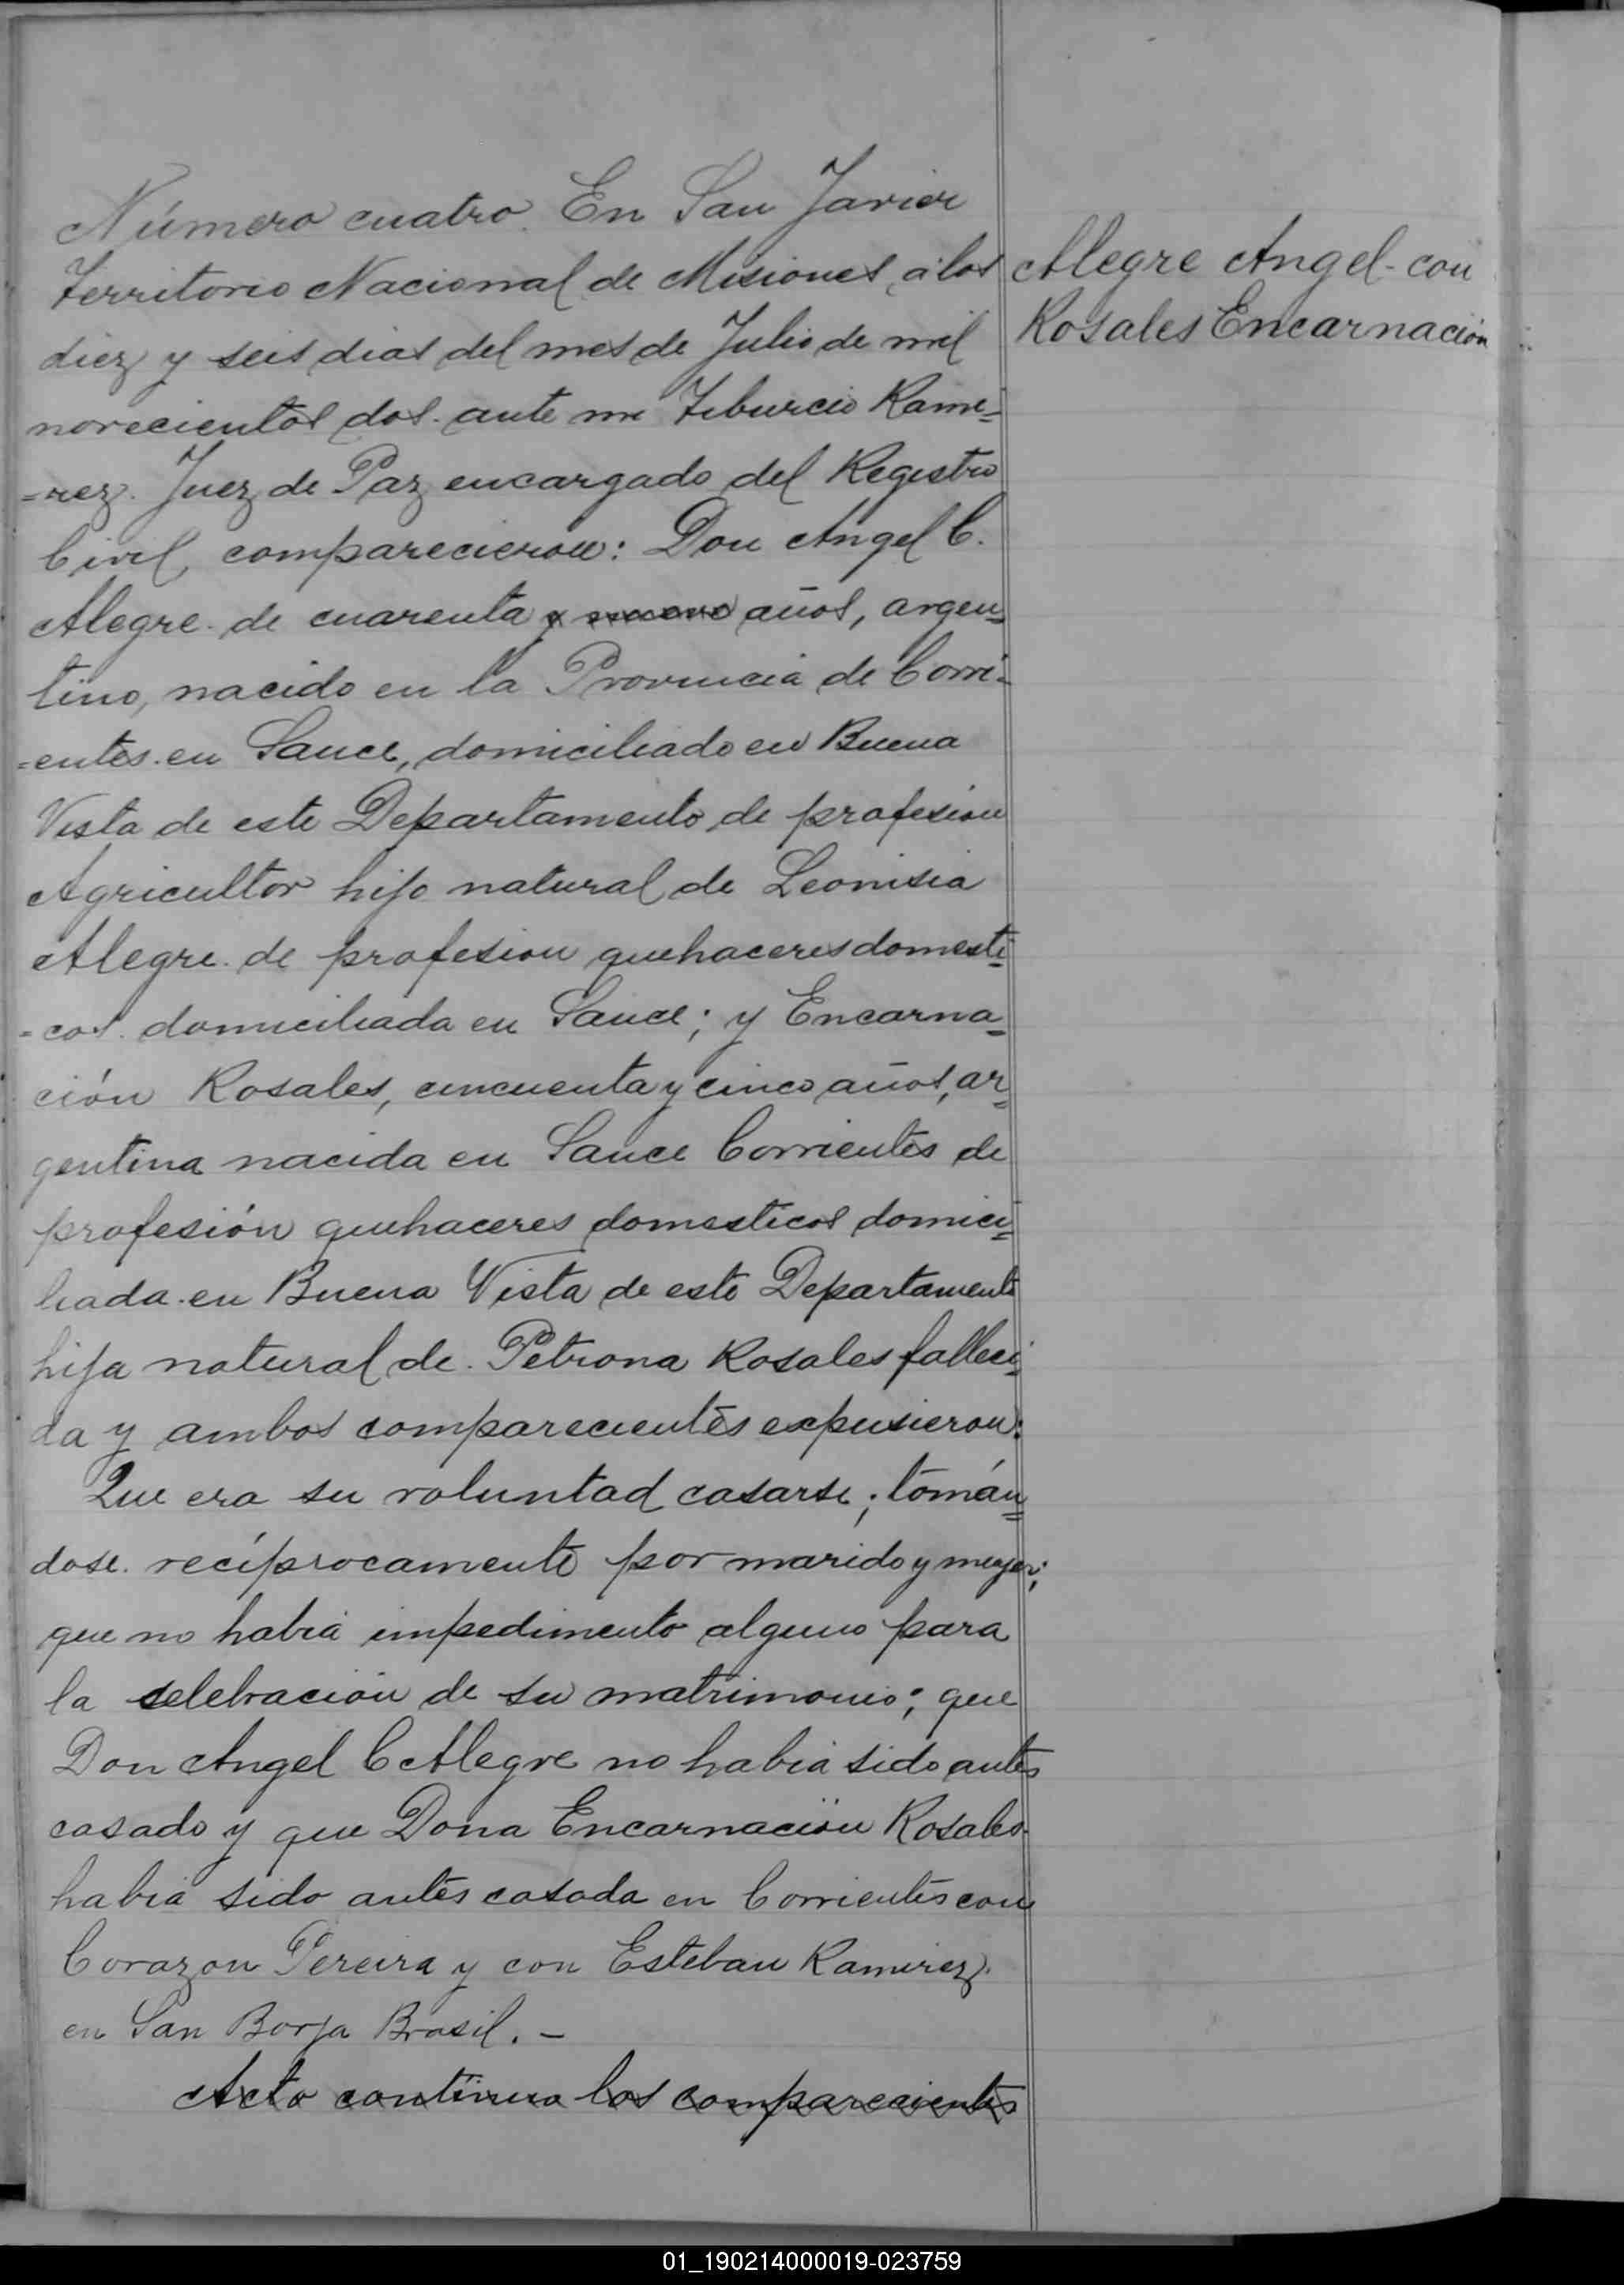 Número cuatro. En San Javier
Territorio Nacional de Misiones, á los
diez y seis dias del mes de Julio de mil
novecientos dos. ante mi Tiburcio Rami=
=rez. Juez de Paz encargado del Registro
Civil, comparecieron: Don Angel C.
Alegre. de cuarenta y nueve años, argen=
tino, nacido en la Provincia de Corri=
=entes. en Sauce, domiciliado en Buena
Vista de este Departamento, de profesion
Agricultor hijo natural de Leonisia
Alegre. de profesion quehaceres domesti=
=cos. domiciliada en Sauce; y Encarna=
ción Rosales, cincuenta y cinco años, ar=
gentina nacida en Sauce Corrientes de
profesión quehaceres domesticos domici=
liada en Buena Vista de este Departamento
hija natural de Petrona Rosales falleci=
da y ambos comparecientes expusieron:
Que era su voluntad casarse; tomán=
dose. recíprocamente por marido y mujer;
que no habia impedimento alguno para
la selebracion de su matrimonio; que
Don Angel C Alegre no habia sido antes
casado y que Dona Encarnación Rosales
habia sido antes casada en Corrientes con
Corazon Pereira y con Esteban Ramirez.
en San Borja Brasil. –
Acto continuo los comparecientes
Alegre Angel - con
Rosales Encarnación
01_190214000019-023759